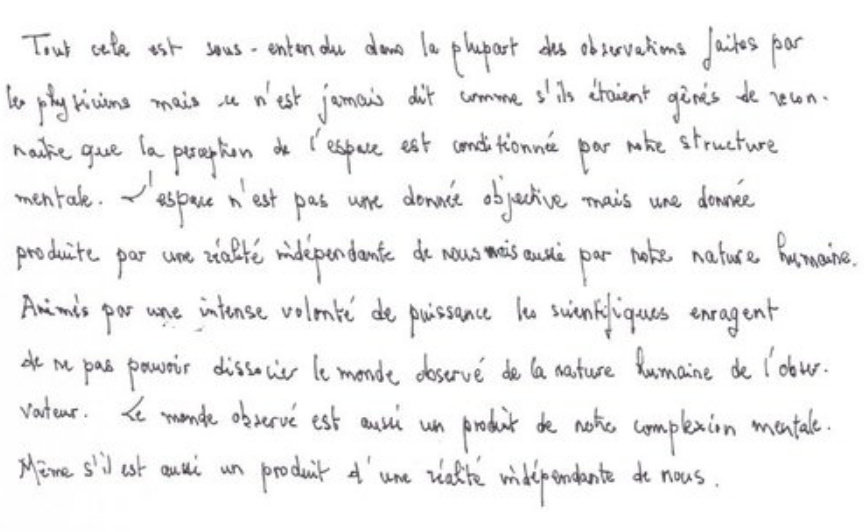 Tout cela est sous-entendu dans la plupart des observations faites par
les physiciens mais ce n'est jamais dit comme s'ils étaient gênés de recon-
naître que la perception de l'espace est conditionnée par notre structure
mentale. L'espace n'est pas une donnée objective mais une donnée
produite par une réalité indépendante de nous mais aussi par notre nature humaine.
Animés par une intense volonté de puissance les scientifiques enragent
de ne pas pouvoir dissocier le monde observé de la nature humaine de l'obser-
vateur. Le monde observé est aussi un produit de notre complexion mentale.
Même s'il est aussi un produit d'une réalité indépendante de nous.